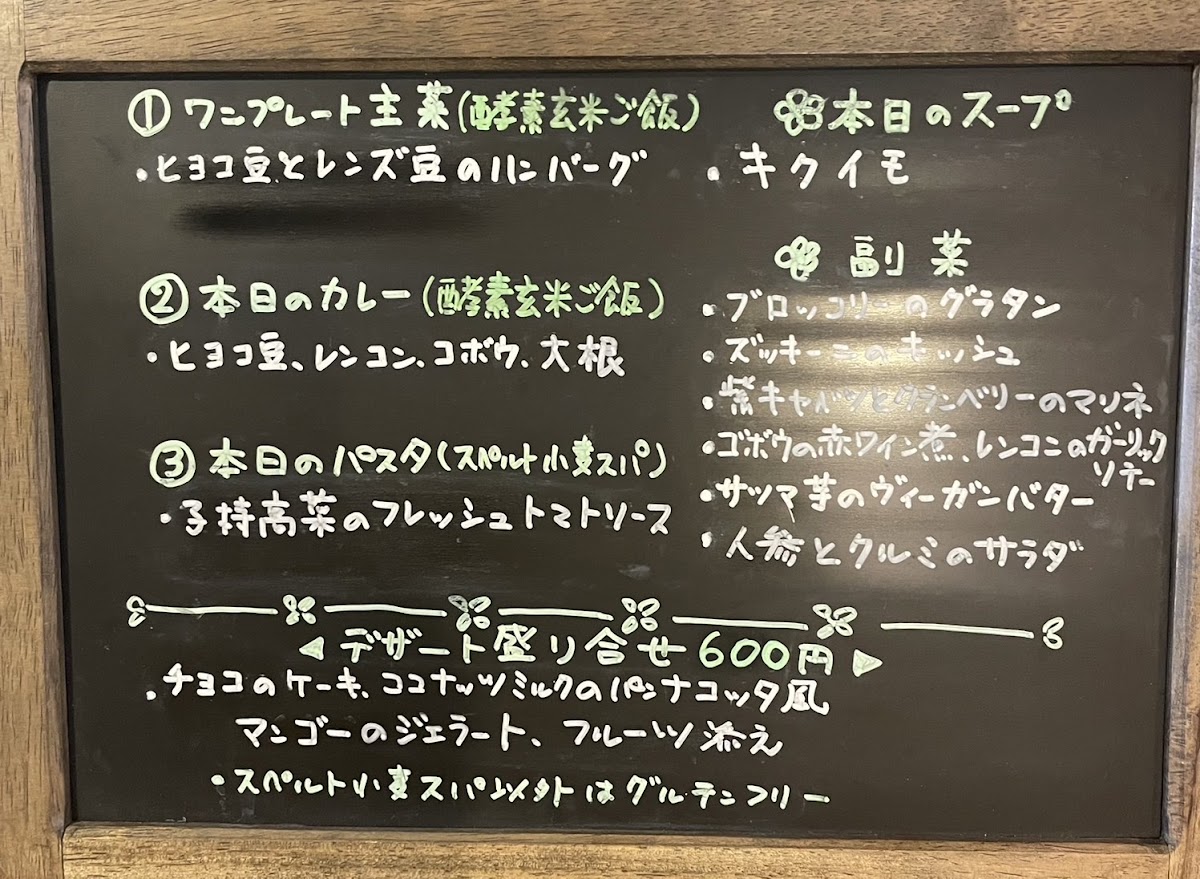 ① ワンプレート主菜(酵素玄米ご飯)
・ヒヨコ豆とレンズ豆のハンバーグ
② 本日のカレー(酵素玄米ご飯)
・ヒヨコ豆、レンコン、コボウ、大根
③ 本日のパスタ(スペルト小麦スパ)
・子持高菜のフレッシュトマトソース
本日のスープ
・キクイモ
副菜
・ブロッコリーのグラタン
・ズッキーニのキッシュ
・紫キャベツとクランベリーのマリネ
・ゴボウの赤ワイン煮、レンコンのガーリック
ソテー
・サツマ芋のヴィーガンバター
・人参とクルミのサラダ
◀デザート盛り合せ600円▶
・チョコのケーキ、ココナッツミルクのパンナコッタ風
マンゴーのジェラート、フルーツ添え
・スペルト小麦スパ以外はグルテンフリー